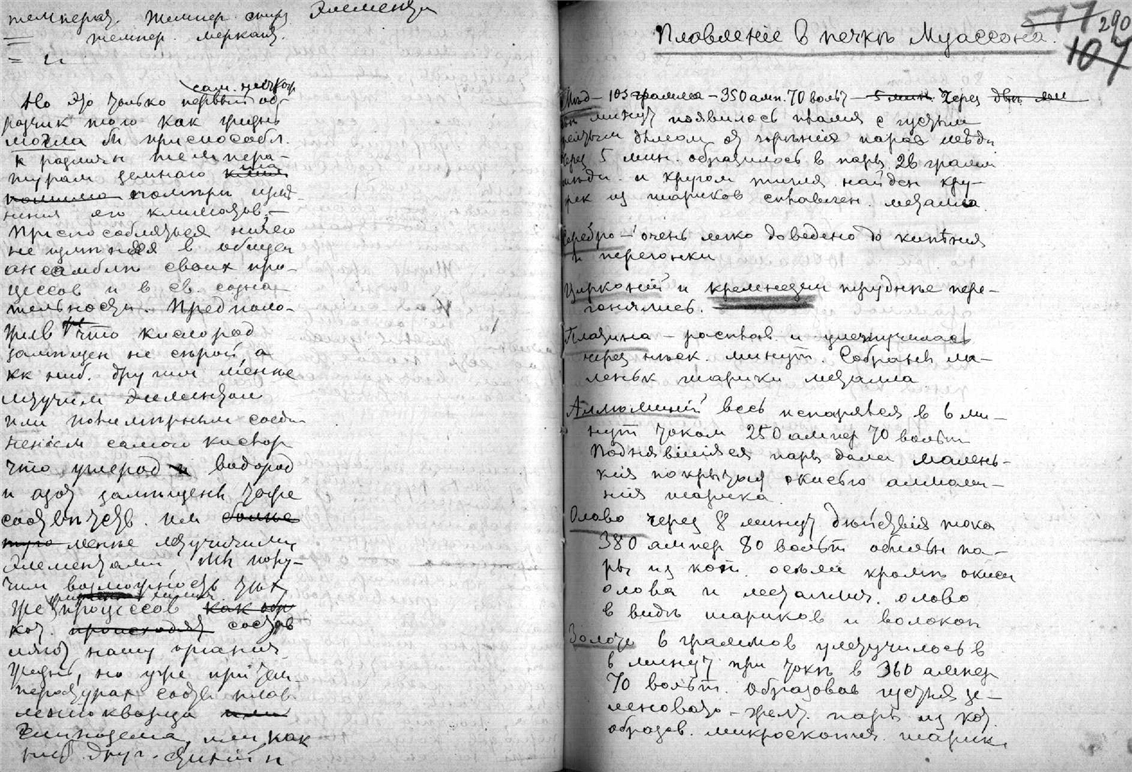 температ. Темпер. Элемента
темпер. меркал.
=
сам. перв
Но это только первый об-
разчик того как жизнь
могла бы приспособл.
к различн. темпера-
турам земного
помимо
нения его климатов.
Приспособляться ничего
не изменяя в общем
ансамбле своих про-
цессов и в ея созна-
тельности. Предполо-
жив что кислород
замещен не серой, а
кк ниб. другим менѣе
летучим элементом
или полимерным соеди-
неніем самого кислор
что углерод и водород
и азот замещены тоже
соотвѣтств. им болѣе
менѣе летучими
элементами мы полу-
чим возможность тѣх
же процессов как
кот. происходят состав
ляют нашу органич.
жизнь, но уже при тем
пературах соотв. плав
ленію кварца или
или как
ниб. друг.
290
107
Плавленіе в печкѣ Муассона.
Мѣдь – 103 грамма – 350 амп. 70 вольт – 5 мин. Через двѣ
минут появилось пламя с густым
бѣлым дымом от горѣнія паров мѣди
Через 5 мин. образилось в парѣ 26 грамм
мѣди. и кругом тигля найден кру-
жек из шариков сплавлен. металла.
Серебро – очень легко доведено до кипѣнія
и перегонки
Цирконій и кремнезем труднѣе пере-
гонялись.
Платина – расплав. и улетучилась
через нѣск. минут. Собраны ма-
леньк шарики металла
Аллюминій весь испарился в 6 ми-
нут током 250 ампер 70 вольт
Поднявшійся паръ дали малень-
кія покрытыя окисью аллюми-
нія шарика.
Олово через 8 минут дѣйствія тока
380 ампер 80 вольт обильн па-
ры из кот. осѣли кромѣ окиси
олова и металлич. олово
в видѣ шариков и волокон
Золото 6 граммов улетучилось в
6 минут при токѣ в 360 ампер
70 вольт. Образовав густыя зе-
леновато-желт. парѣ из кот.
образов. микроскопич. шарики